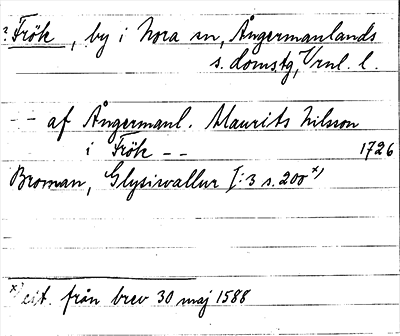 ? Frök, by i Nora sn, Ångermanlands
s. domstg, Vrnl. l.
– – af Ångermanl. Maurits Nilsson
i Frök – – 1726
Broman, Glysisvallur I:3 s. 200 x)
x) cit. från brev 30 maj 1588